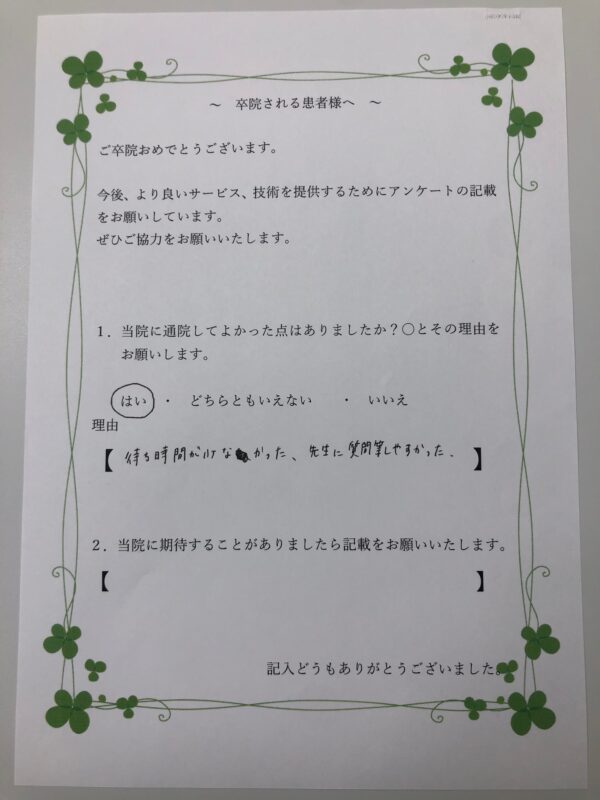 ～ 卒院される患者様へ ～
ご卒院おめでとうございます。
今後、より良いサービス、技術を提供するためにアンケートの記載
をお願いしています。
ぜひご協力をお願いいたします。
1．当院に通院してよかった点はありましたか？〇とその理由を
お願いします。
はい ・ どちらともいえない ・ いいえ
理由
【 待ち時間が少なかった、先生に質問等しやすかった. 】
2．当院に期待することがありましたら記載をお願いいたします。
【 】
記入どうもありがとうございました。